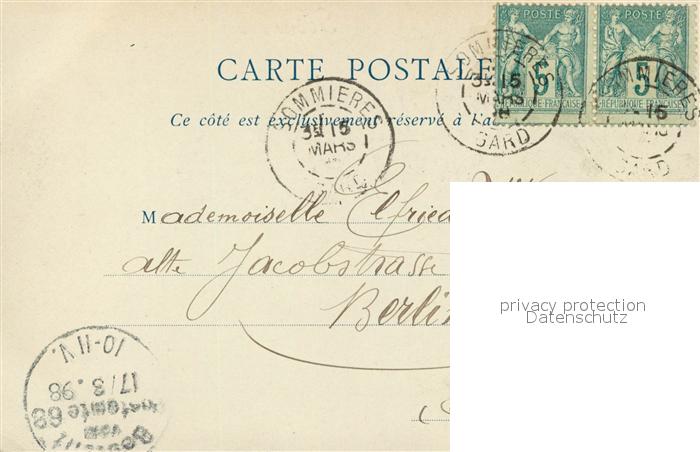 POSTE POSTE
5 5
RÉPUBLIQUE FRANÇAISE RÉPUBLIQUE FRANÇAISE
CARTE POSTALE
SOMMIERES
15
MARS
GARD
SOMMIERES
15
MARS
SOMMIERES
15
Ce côté est exclusivement réservé à l'ad
Mademoiselle Elfried
alte Jacobstrasse
Berlin
privacy protection
Datenschutz
10-11 V.
17/3.98
68
vom
Bestellt